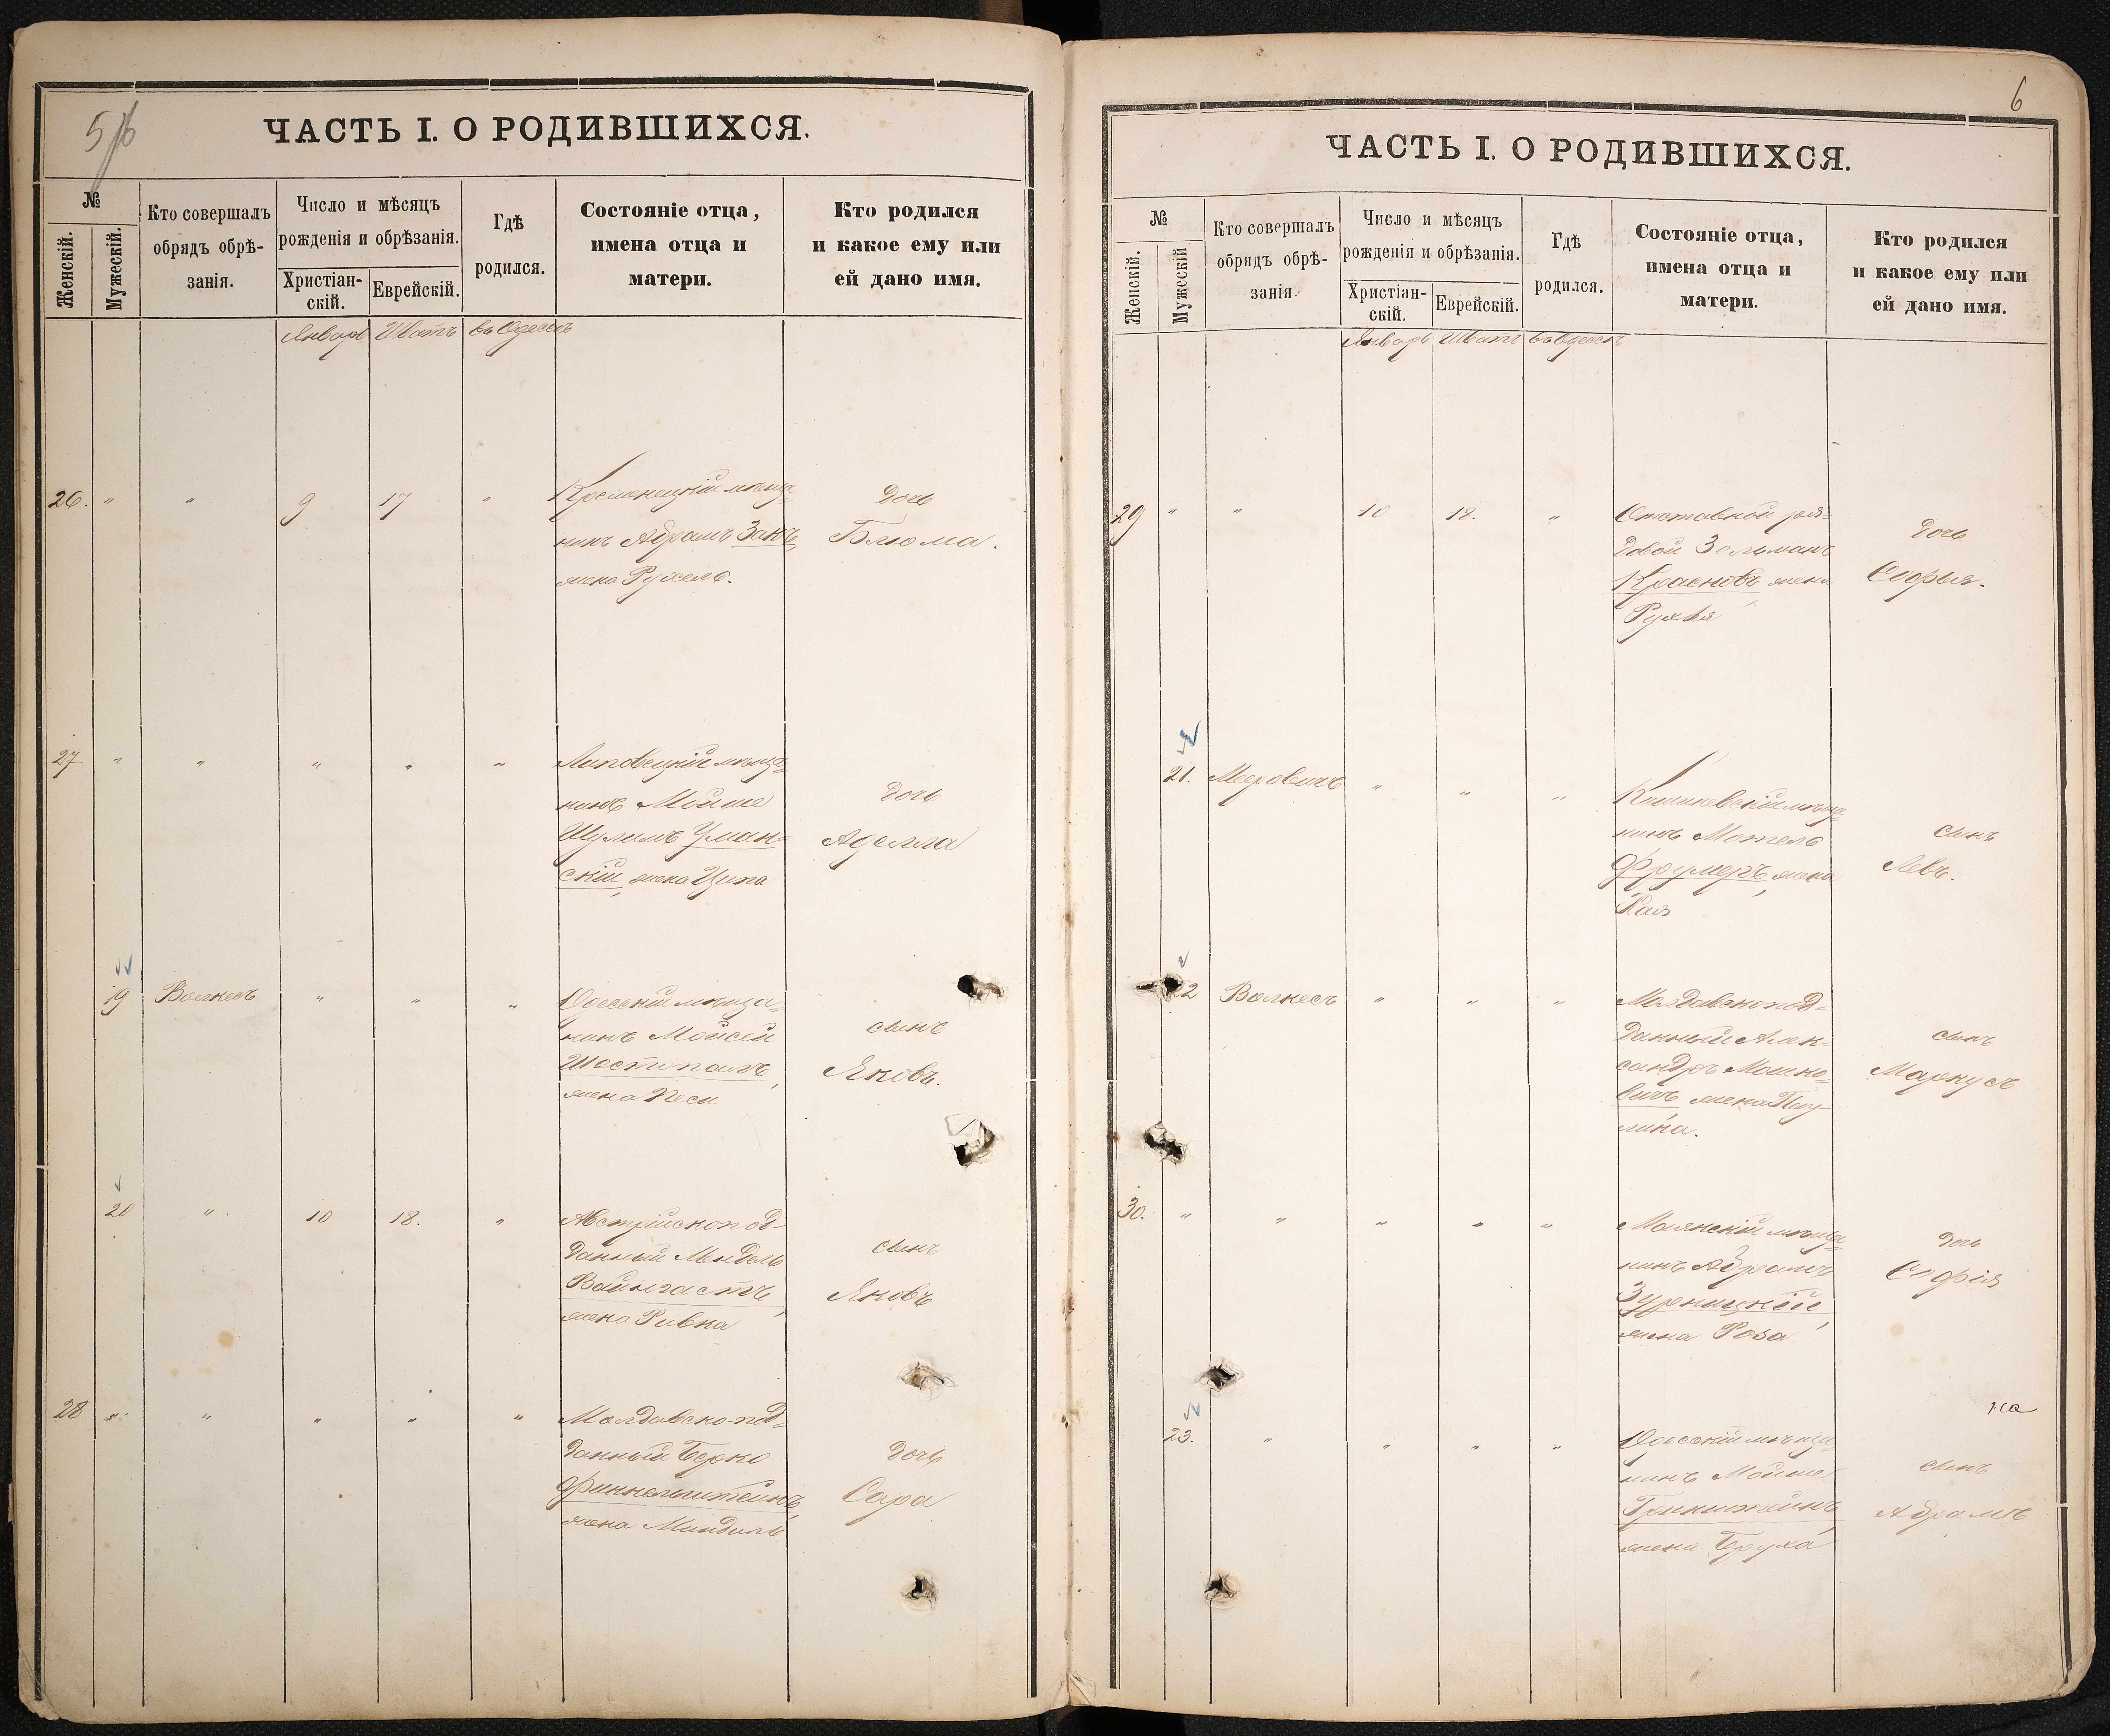 ЧАСТЬ I. О РОДИВШИХСЯ.
№
Женскій.
Мужескій.
Кто совершалъ
обрядъ обрѣ-
занія.
Число и мѣсяцъ
рожденія и обрѣзанія.
Христіан-
скій.
Еврейскій.
Гдѣ
родился.
Состояніе отца,
имена отца и
матери.
Кто родился
и какое ему или
ей дано имя.
Январь Шватъ въ Одессѣ
26. " " 9 17 "
Кременецкій мѣща-
нинъ Абрамъ Закъ,
жена Рухель.
дочь
Блюма.
27 " " " " "
Липовецкій мѣща-
нинъ Мойше
Шулимъ Уман-
скій, жена Ципа
дочь
Аделла
19 Волкесъ " " "
Одесскій мѣща-
нинъ Мойсей
Шестопалъ,
жена Песи
сынъ
Яковъ.
20 " 10 18. "
Австрійскопод-
данный Мендель
Вайнгастъ,
жена Ривка
сынъ
Яковъ
28 " " " " "
Молдавско-под-
данный Берко
Финкельштейнъ,
жена Миндиль
дочь
Сара
6
ЧАСТЬ I. О РОДИВШИХСЯ.
№
Женскій.
Мужескій
Кто совершалъ
обрядъ обрѣ-
занія.
Число и мѣсяцъ
рожденія и обрѣзанія.
Христіан-
скій.
Еврейскій.
Гдѣ
родился.
Состояніе отца,
имена отца и
матери.
Кто родился
и какое ему или
ей дано имя.
Январь Шватъ въ Одессѣ
29 " " 10 18. "
Отставной ря-
довой Зельманъ
Красновъ, жена
Рухля
дочь
Софья.
21. Мееровичъ " " "
Кишиневскій мѣща-
нинъ Мотель
Фрумеръ, жена
Хая
сынъ
Левъ.
22 Волкесъ " " "
Молдавскопод-
данный Алек-
сандръ Мошко-
вичъ, жена Пау-
лина.
сынъ
Маркусъ
30. " " " " "
Маякскій мѣща-
нинъ Абрамъ
Зурницкій,
жена Роза
дочь
Софія
23. " " " "
Одесскій мѣща-
нинъ Мойше
Гринштейнъ,
жена Бруха
сынъ
Абрамъ